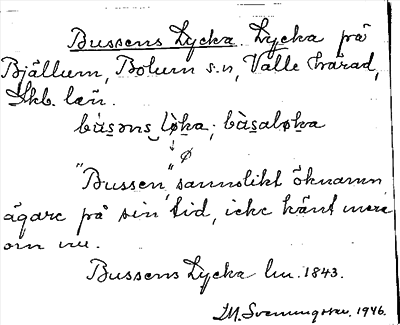 Bussens Lycka. Lycka på
Bjällum, Bolum s:n, Valle härad,
Skb. län.
bàsəns løka; bàsaløka
ø
"Bussen" sannolikt öknamn
ägare på sin tid, icke känt mera
om nu.
Bussens Lycka lm. 1843.
M. Svenningsson, 1946.